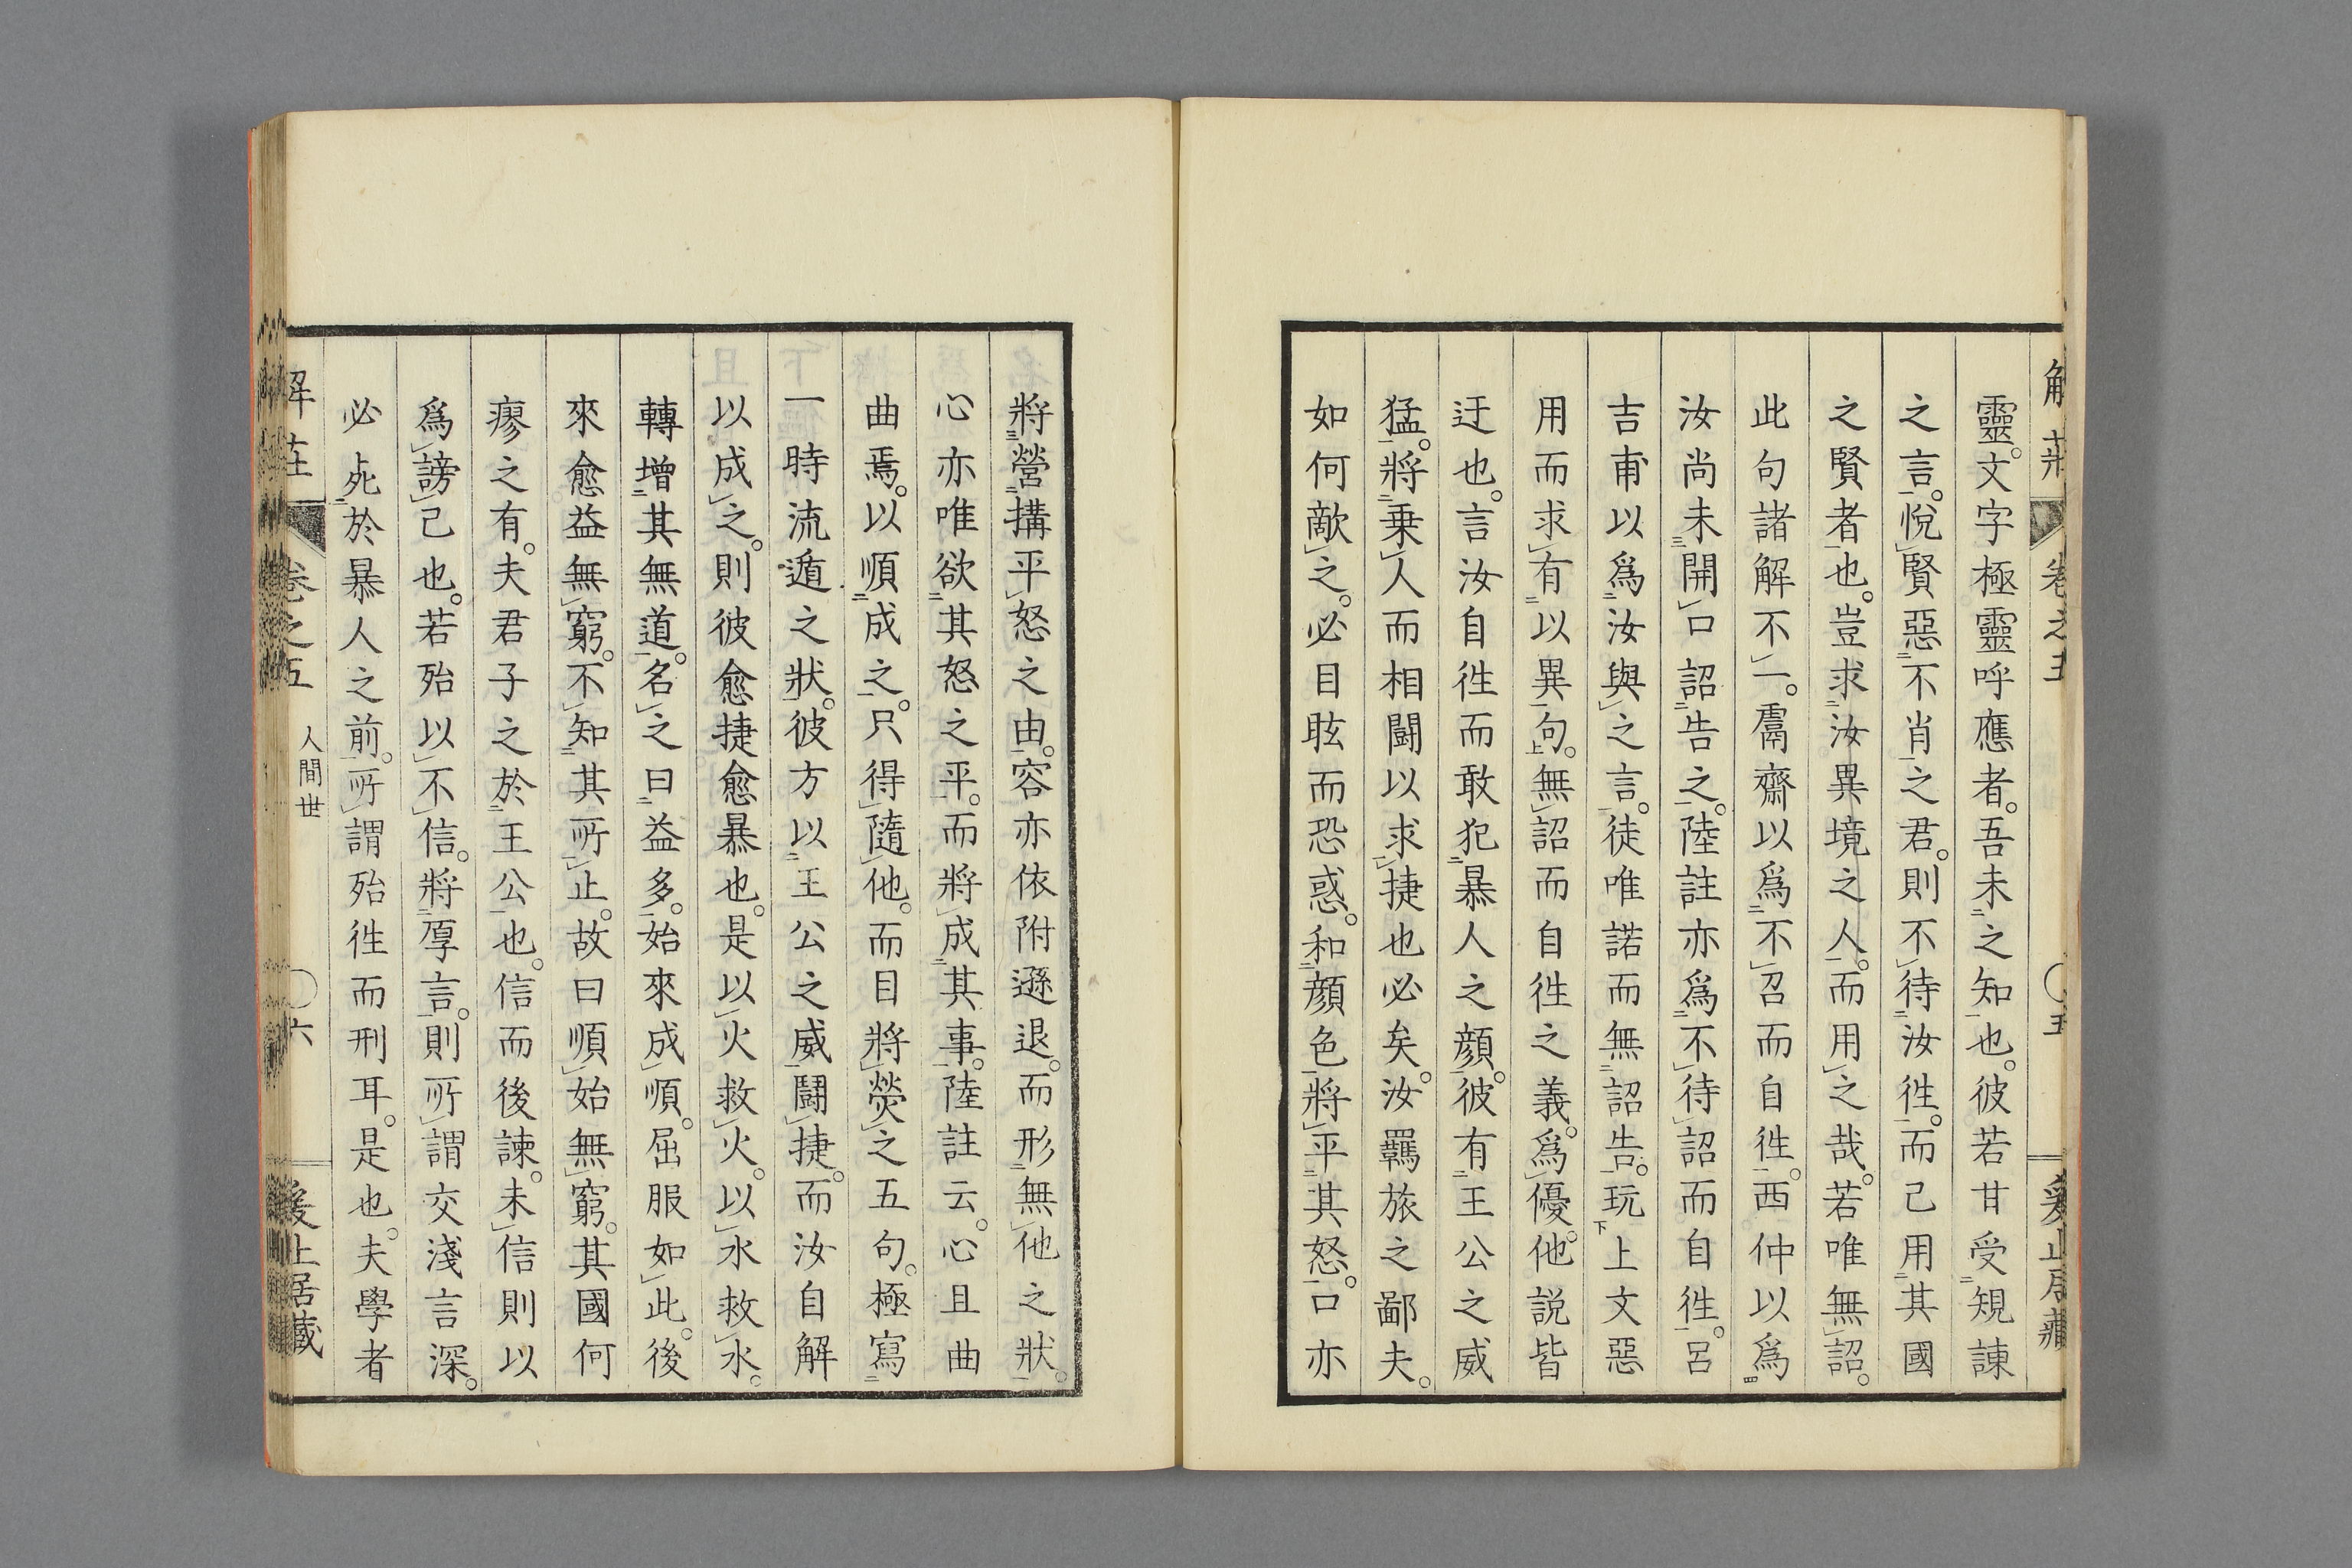 解莊 卷之五 〇五 爰止居藏
靈。文字極靈呼應者。吾未之知也。彼若甘受規諫
之言。悅賢惡不肖之君。則不待汝徃。而己用其國
之賢者也。豈求汝異境之人。而用之哉。若唯無詔。
此句諸解不一。鬳齋以爲不召而自徃。西仲以爲
汝尚未開口詔告之。陸註亦爲不待詔而自徃。呂
吉甫以爲汝與之言。徒唯諾而無詔告。玩上文惡
用而求有以異句。無詔而自徃之義。爲優。他說皆
迂也。言汝自徃而敢犯暴人之顏。彼有王公之威
猛。將乗人而相鬪以求捷也必矣。汝羈旅之鄙夫。
如何敵之。必目眩而恐惑。和顏色將平其怒。口亦
將營搆平怒之由。容亦依附遜退。而形無他之狀。
心亦唯欲其怒之平。而將成其事。陸註云。心且曲
曲焉。以順成之。只得隨他。而目將熒之五句。極寫
一時流遁之狀。彼方以王公之威鬪捷。而汝自解
以成之。則彼愈捷愈暴也。是以火救火。以水救水。
轉增其無道。名之曰益多。始來成順。屈服如此。後
來愈益無窮。不知其所止。故曰順始無窮。其國何
瘳之有。夫君子之於王公也。信而後諫。未信則以
爲謗己也。若殆以不信。將厚言。則所謂交淺言深。
必死於暴人之前。所謂殆徃而刑耳。是也。夫學者
解莊 卷之五 人間世 〇六 爰止居藏